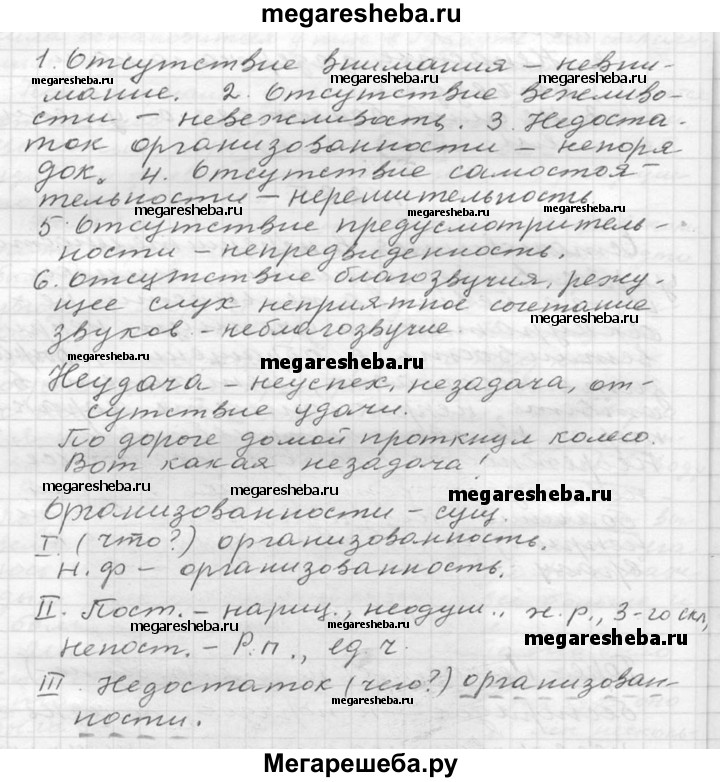 megaresheba.ru
1. Отсутствие внимания – невни-
megaresheba.ru
megaresheba.ru
мание. 2. Отсутствие вежливо-
сти – невежливость. 3. Недоста-
ток организованности – непоря
док. 4. Отсутствие самостоя-
тельности – нерешительность
megaresheba.ru
megaresheba.ru
5 Отсутствие предусмотритель-
ности – непредвиденность.
6. Отсутствие благозвучия, режу-
щее слух неприятное сочетание
megaresheba.ru
звуков – неблагозвучие.
megaresheba.ru
megaresheba.ru
Неудача – неуспех, незадача, от-
сутствие удачи.
По дороге домой проткнул колесо.
Вот какая незадача!
megaresheba.ru
megaresheba.ru
megaresheba.ru
Организованности – сущ.
I (что?) организованность.
Н.ф – организованность.
II. Пост. – нариц., неодуш., ж.р., 3-го скл,
megaresheba.ru
megaresheba.ru
Непост. – Р.п., ед ч.
III. Недостаток (чего?) организован-
megaresheba.ru
ности.
Мегарешеба.ру